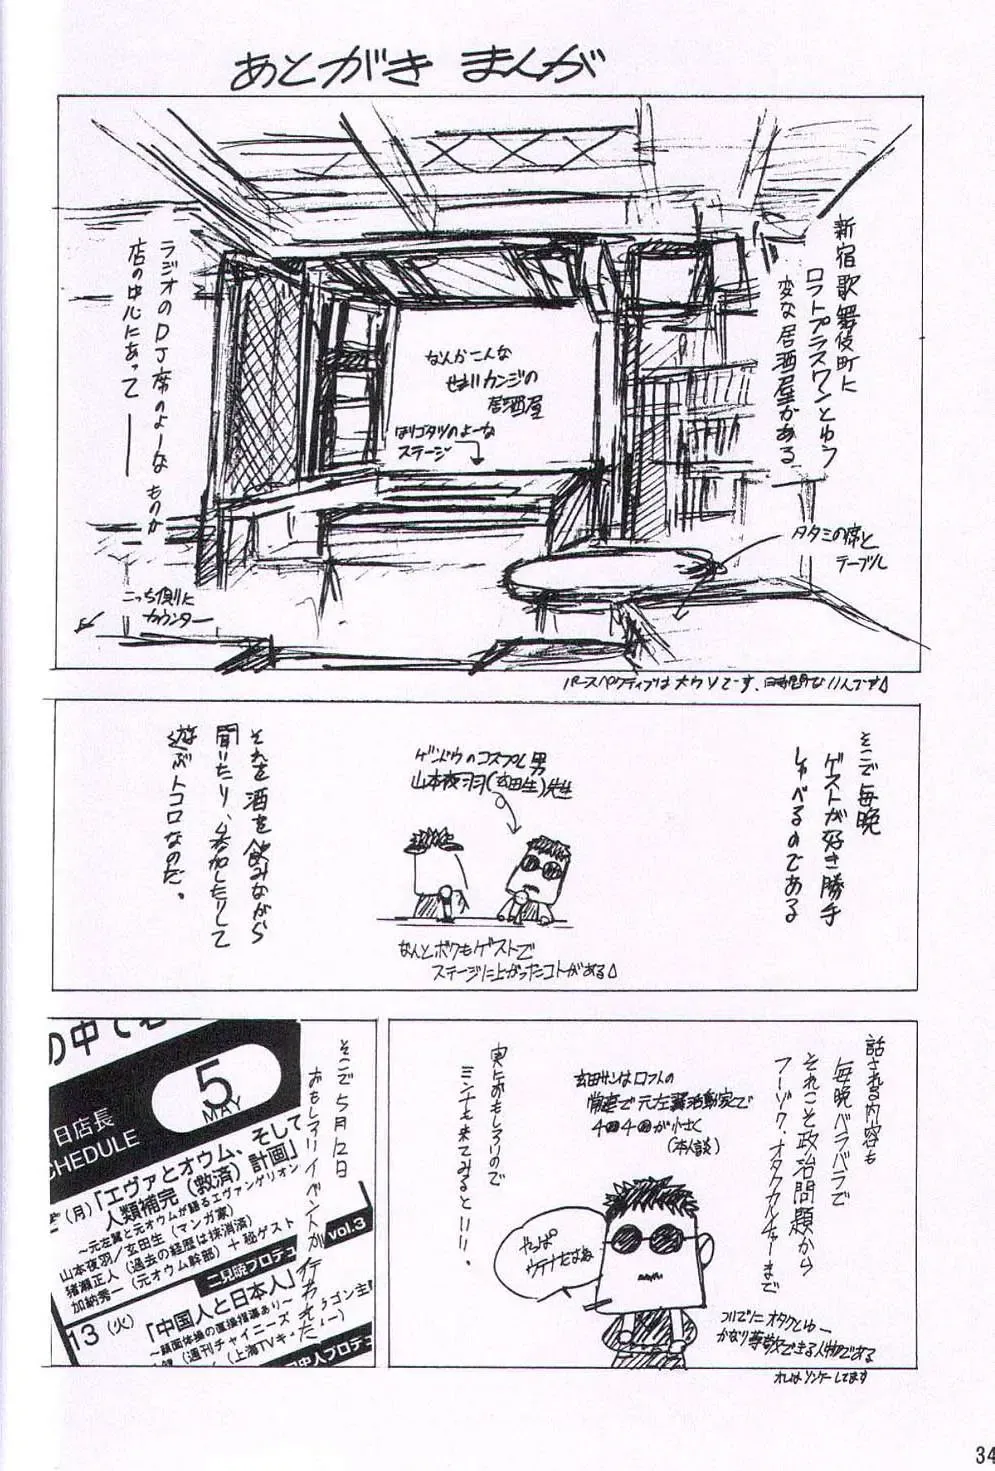 あとがき まんが
新宿歌舞伎町に
ロフトプラスワンとゆう
変な居酒屋がある
ラジオのDJ席のよーなものが
店の中心にあって――
なんかこんな
せまいカンジの
居酒屋
ほりゴタツのよーな
ステージ
タタミの席と
テーブル
こっち側に
カウンター
パースペクティブは大ウソです、
そこで毎晩
ゲストが好き勝手
しゃべるのである
ゲンドウのコスプレ男
山本夜羽(玄田生)先生
なんとボクもゲストで
ステージに上がったコトがある
それを酒を飲みながら
聞いたり、参加したりして
遊ぶトコロなのだ。
話される内容も
毎晩バラバラで
それこそ政治問題から
フーゾク・オタクカルチャーまで
玄田サンはロフトの
常連で元左翼活動家で
(本人談)
やっぱ
ウテナだよね
ついでにオタクとゆー
かなり尊敬できる人物である
オレはソンケーしてます
実におもしろいので
ミンナも来てみるといい。
そこで5月12日
おもしろいイベントが行われた
の中で
5
MAY
日店長
CHEDULE
(月)「エヴァとオウム、そして
人類補完(救済)計画」
〜元左翼と元オウムが語るエヴァンゲリオン
山本夜羽/玄田生(マンガ家)
猪瀬正人(過去の経歴は抹消済)
加納秀一(元オウム幹部)+秘ゲスト
二見暁プロデュ
vol.3
13(火)
「中国人と日本人」
〜顔面体操の直接指導あり〜
(週刊チャイニーズ
ゴン主
(上海TVキ
ー)
史人プロデ
34